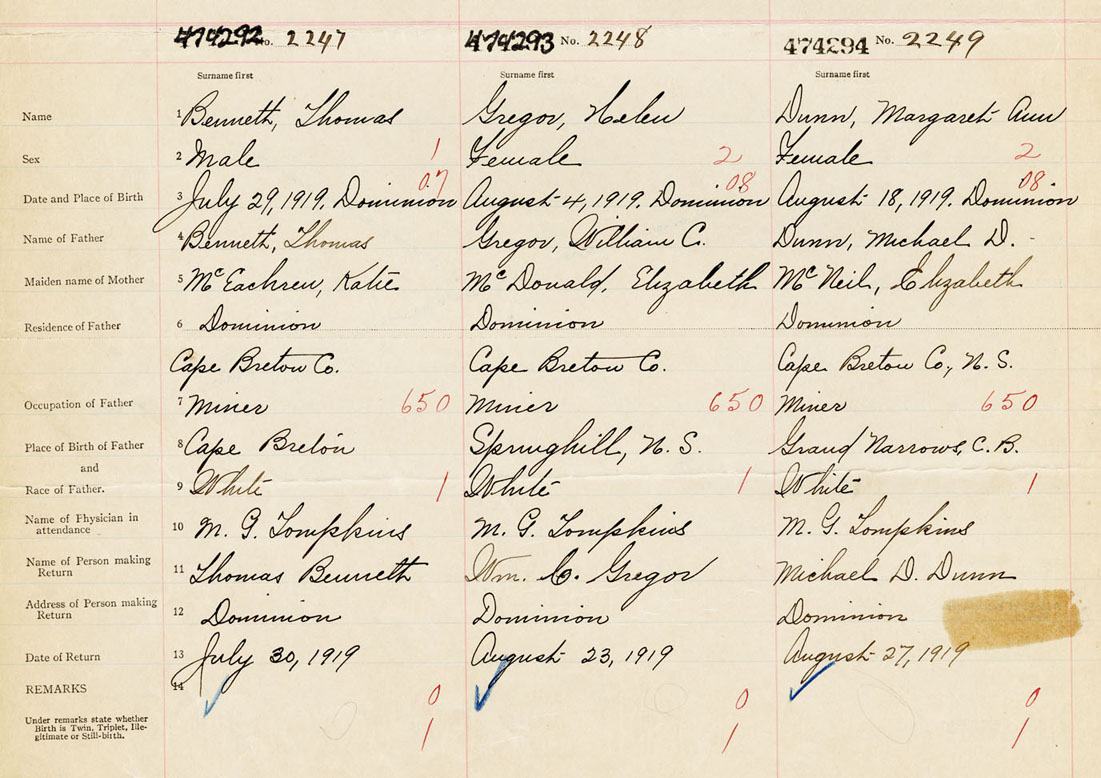 474292 No. 2247 474293 No. 2248 474294 No. 2249
Surname first Surname first Surname first
Name 1 Benneth, Thomas Gregor, Helen Dunn, Margaret Ann
Sex 2 Male 1 Female 2 Female 2
07 08 08
Date and Place of Birth 3 July 29, 1919. Dominion August 4, 1919. Dominion August 18, 1919. Dominion
Name of Father 4 Benneth, Thomas Gregor, William C. Dunn, Michael D.
Maiden name of Mother 5 McEachren, Katie McDonald, Elizabeth McNeil, Elizabeth
Residence of Father 6 Dominion Dominion Dominion
Cape Breton Co. Cape Breton Co. Cape Breton Co., N. S.
Occupation of Father 7 Miner 650 Miner 650 Miner 650
Place of Birth of Father 8 Cape Breton Springhill, N. S. Grand Narrows, C. B.
and
Race of Father. 9 White 1 White 1 White 1
Name of Physician in
attendance 10 M. G. Tompkins M. G. Tompkins M. G. Tompkins
Name of Person making
Return 11 Thomas Benneth Wm. C. Gregor Michael D. Dunn
Address of Person making
Return 12 Dominion Dominion Dominion
Date of Return 13 July 30, 1919 August 23, 1919 August 27, 1919
REMARKS 14 0 0 0
Under remarks state whether
Birth is Twin, Triplet, Ille-
gitimate or Still-birth. 1 1 1